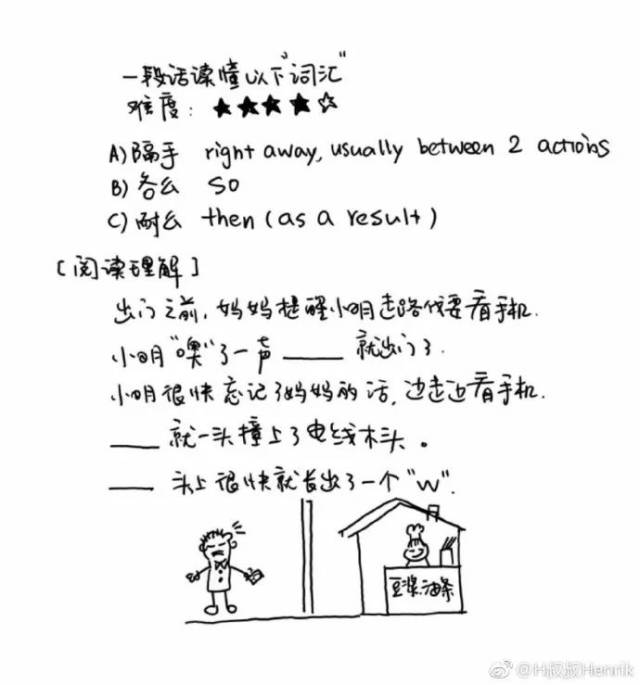 一段话读懂以下"词汇"
难度：★★★★☆
A)隔手 right away, usually between 2 actions
B)各么 so
C)耐么 then (as a result)
[阅读理解]
出门之前,妈妈提醒小明走路伐要看手机.
小明"噢"了一声____就出门了.
小明很快忘记了妈妈的话,边走边看手机.
____就一头撞上了电线木头。
____头上很快就长出了一个"w".
豆浆.油条
@H叔叔Henrik